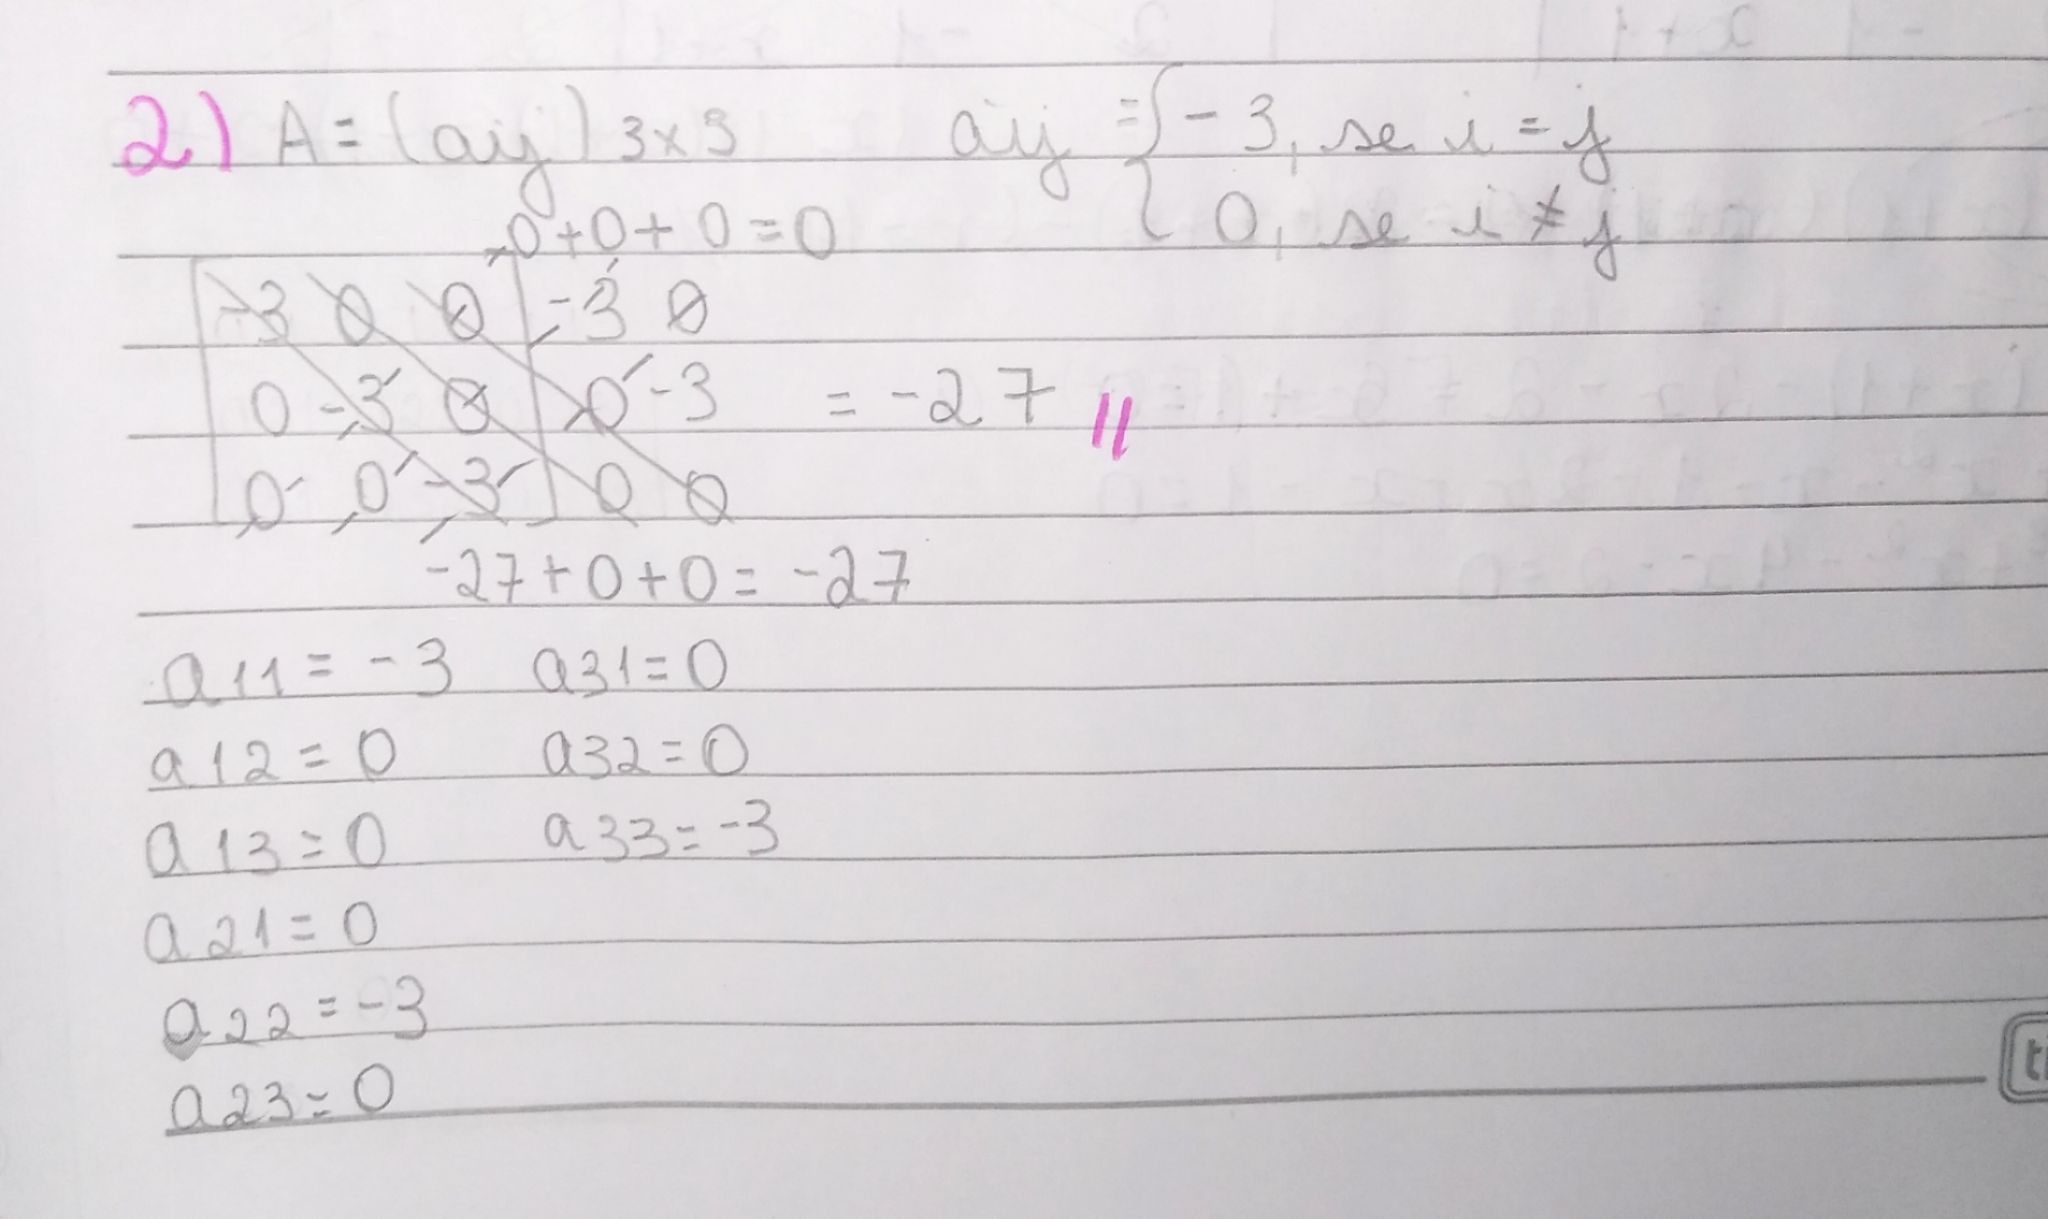 2) A = (aij) 3x3 aij = { -3, se i = j
0, se i ≠ j
0 + 0 + 0 = 0
-3 0 0 | -3 0
0 -3 0 | 0 -3 = -27 //
0 0 -3 | 0 0
-27 + 0 + 0 = -27
a11 = -3 a31 = 0
a12 = 0 a32 = 0
a13 = 0 a33 = -3
a21 = 0
a22 = -3
a23 = 0